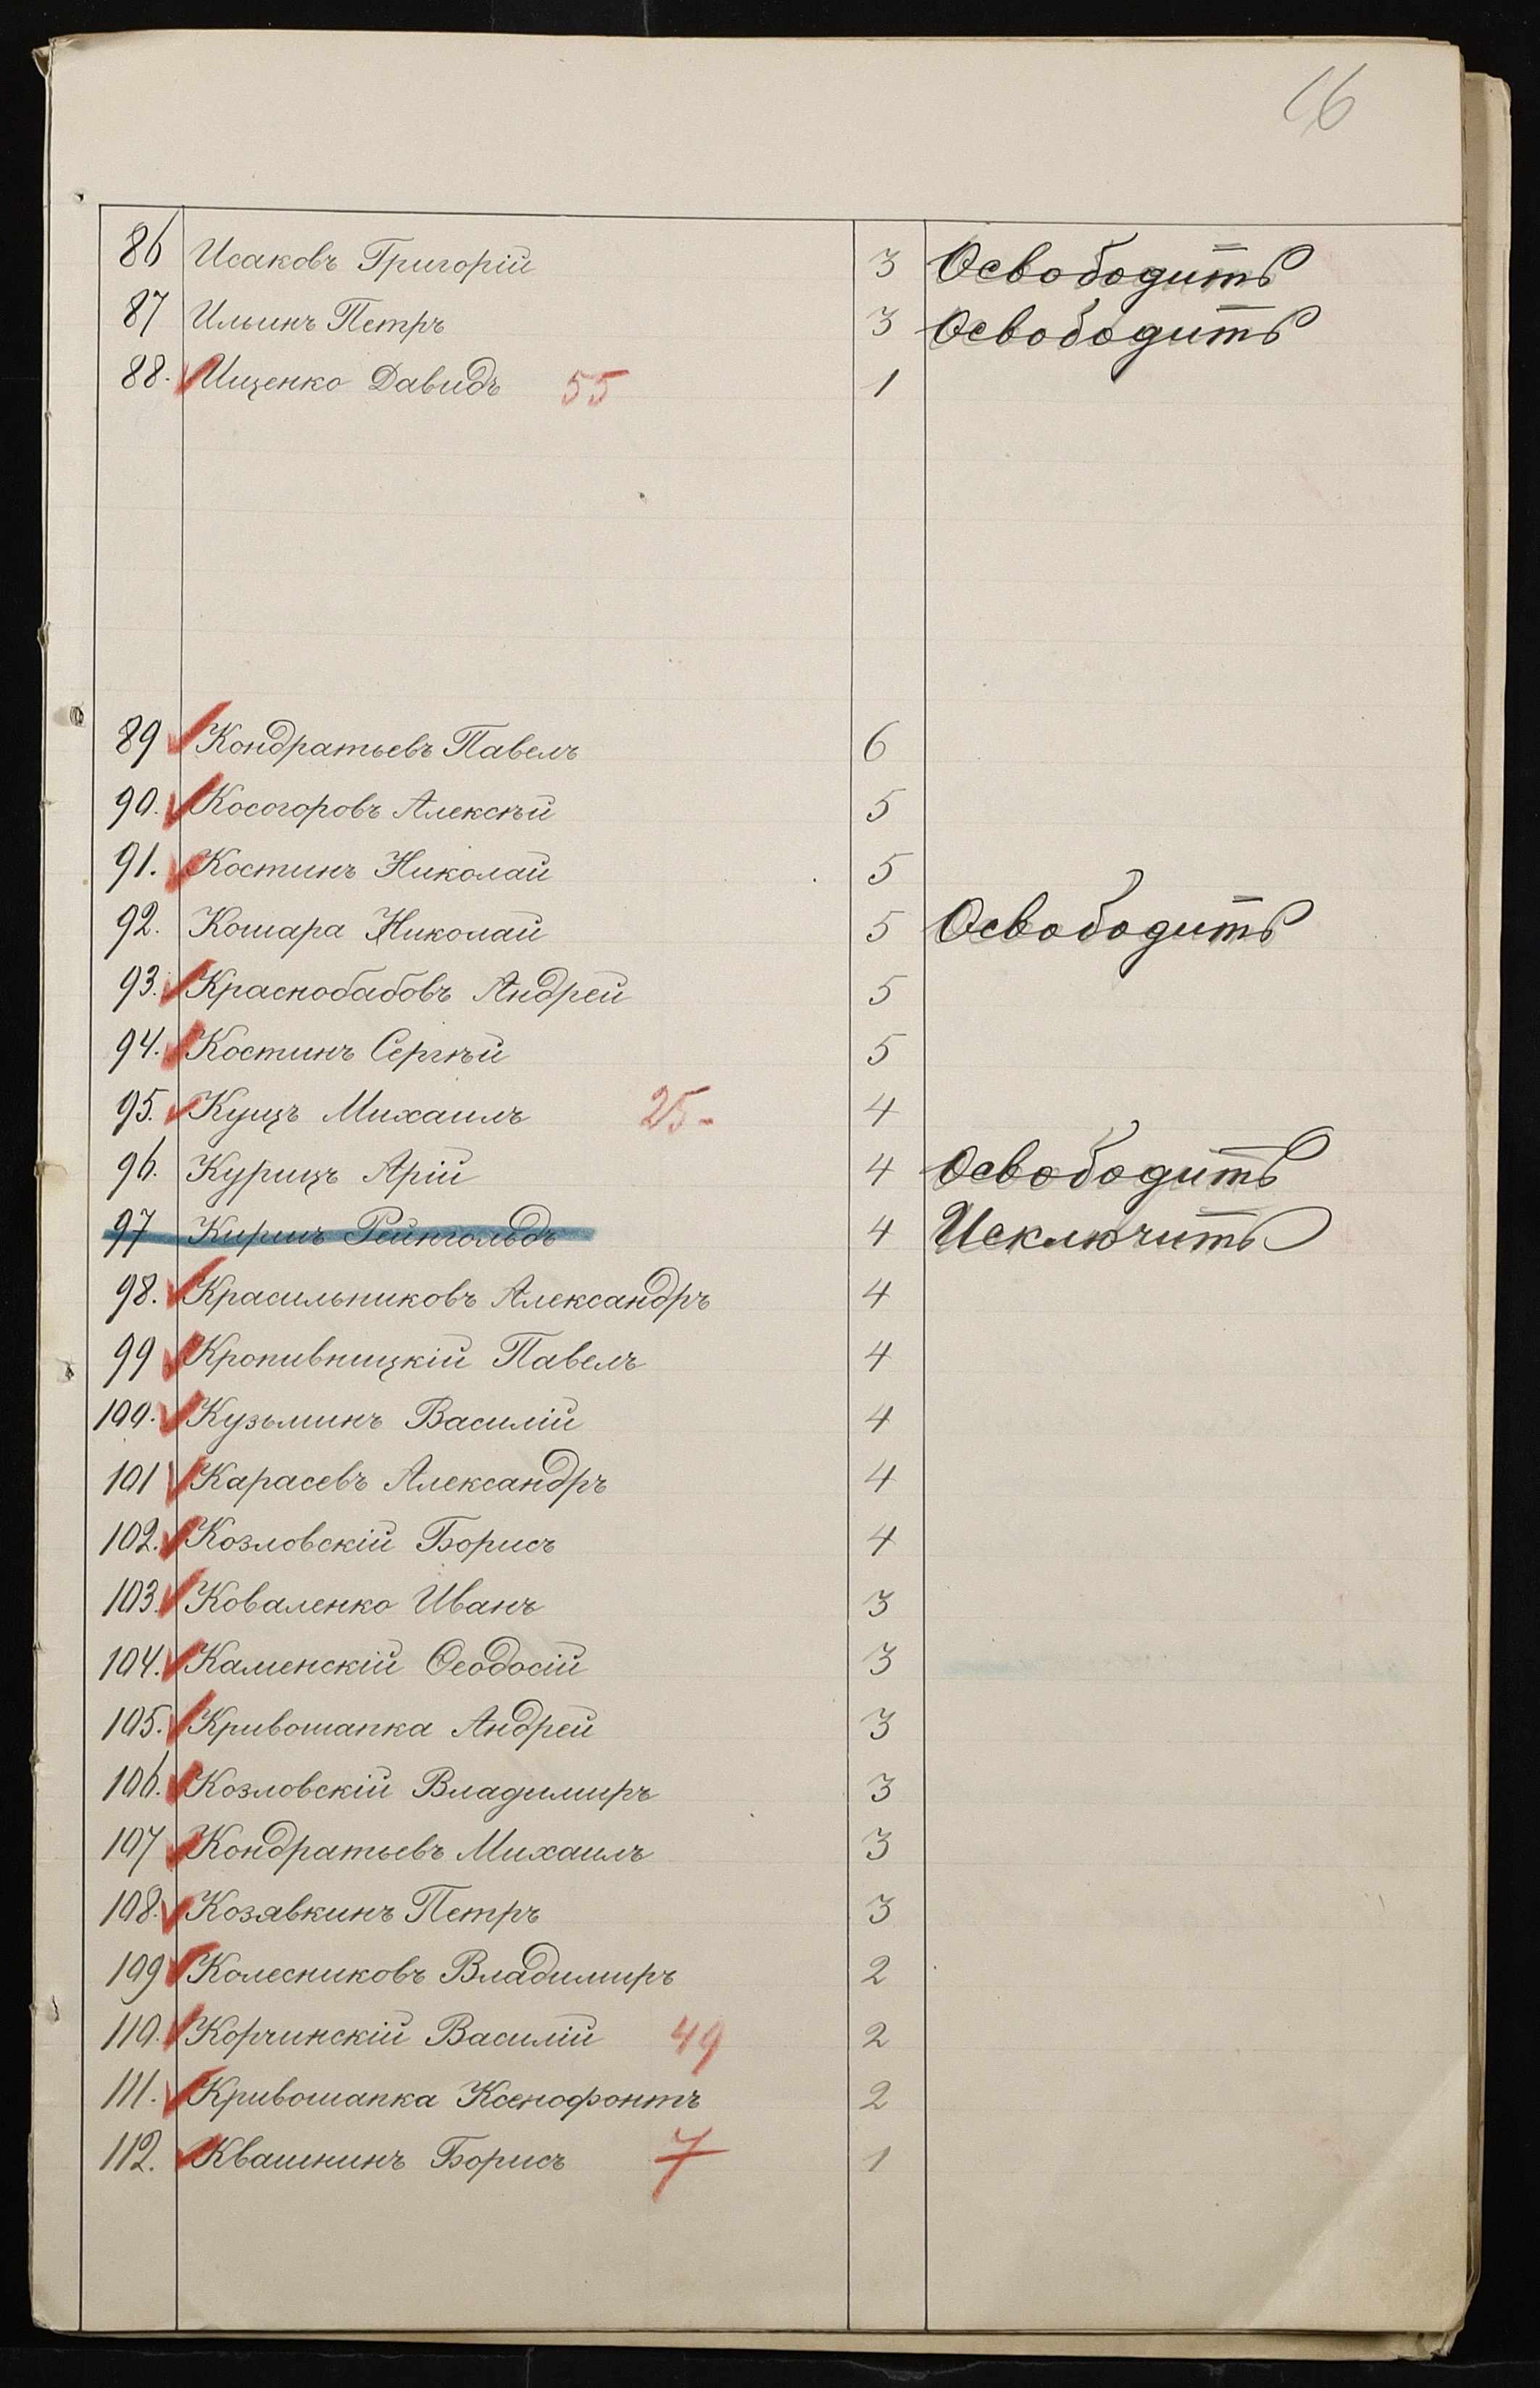 16
86 Исаковъ Григорій 3 Освободить
87 Ильинъ Петръ 3 Освободить
88. Ищенко Давидъ 55 1
89 Кондратьевъ Павелъ 6
90. Косогоровъ Алексѣй 5
91. Костинъ Николай 5
92. Кошара Николай 5 Освободить
93. Краснобабовъ Андрей 5
94. Костинъ Сергѣй 5
95. Кущъ Михаилъ 25- 4
96. Курицъ Арій 4 Освободить
97 Киршъ Рейнгольдъ 4 Исключить
98. Красильниковъ Александръ 4
99 Кропивницкій Павелъ 4
100. Кузьминъ Василій 4
101 Карасевъ Александръ 4
102. Козловскій Борисъ 4
103. Коваленко Иванъ 3
104. Каменскій Ѳеодосій 3
105. Кривошапка Андрей 3
106. Козловскій Владимиръ 3
107 Кондратьевъ Михаилъ 3
108. Козявкинъ Петръ 3
109 Колесниковъ Владимиръ 2
110. Корчинскій Василій 49 2
111. Кривошапка Ксенофонтъ 2
112. Квашнинъ Борисъ 7 1